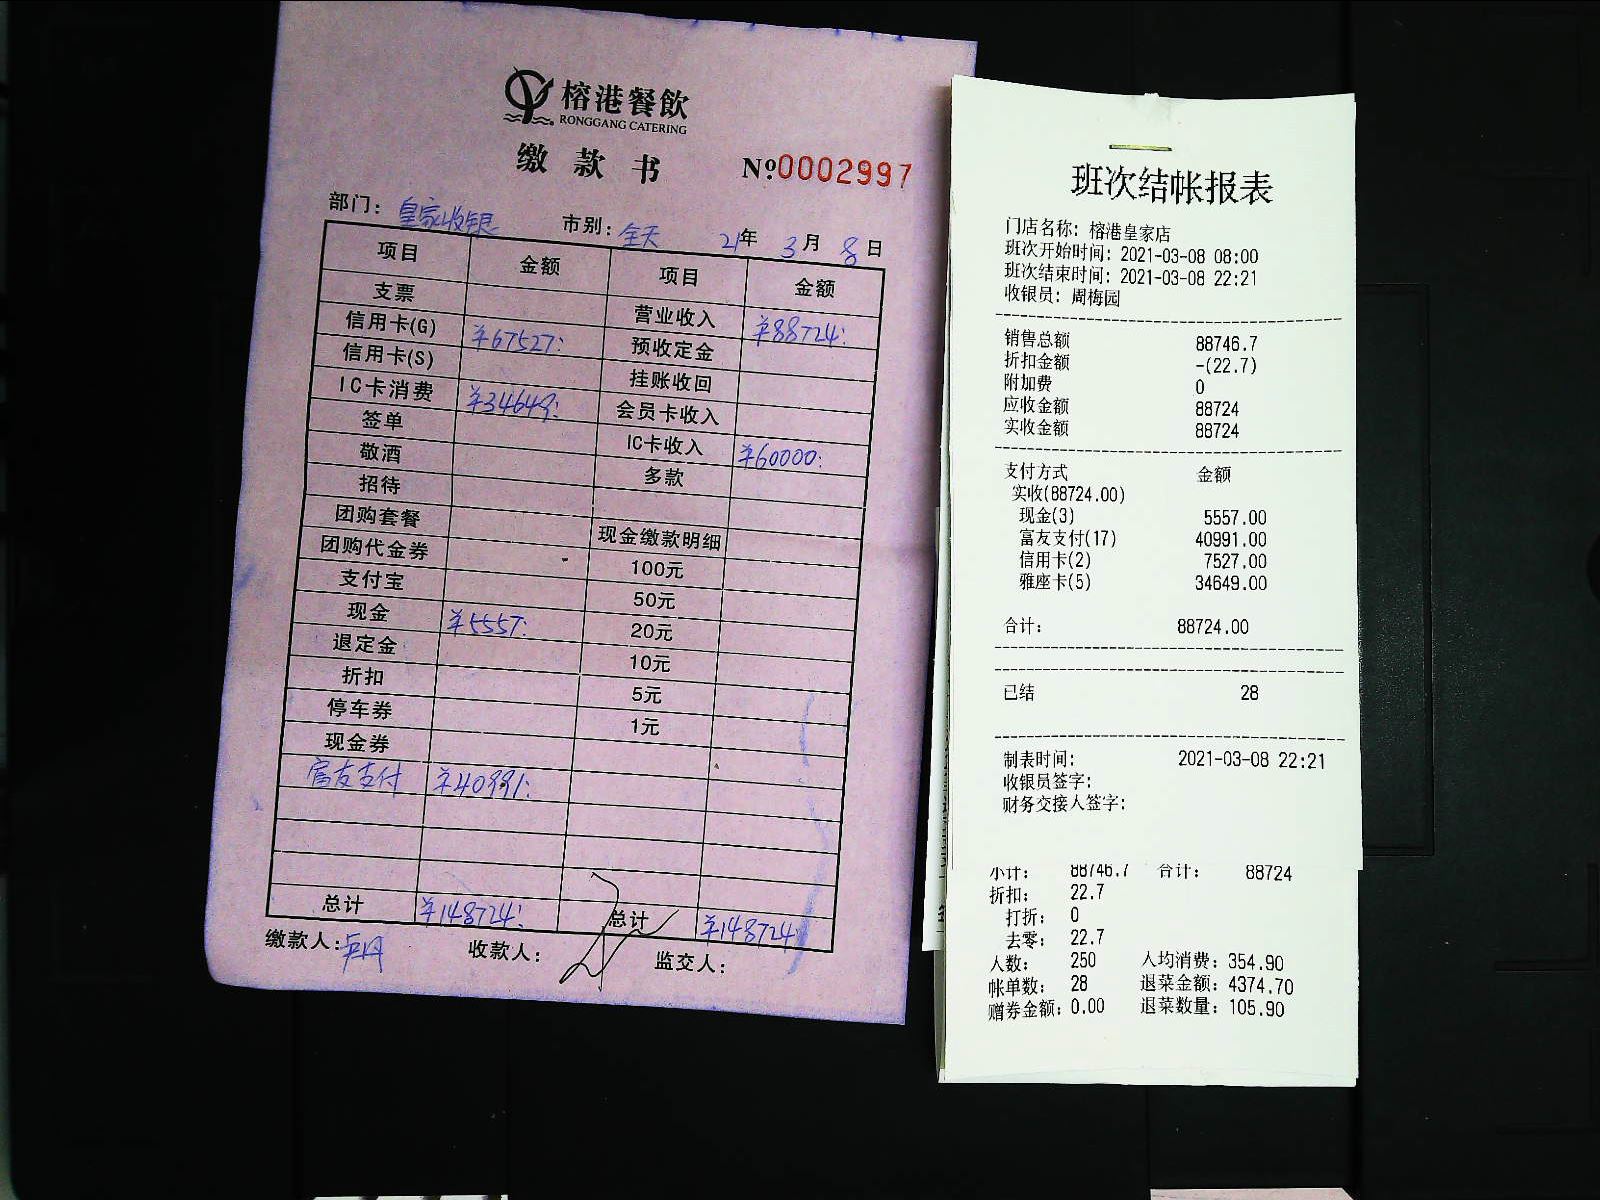 榕港餐飲
RONGGANG CATERING
缴款书
№0002997
部门：皇家收银 市别：全天 21年3月8日
项目 金额 项目 金额
支票 营业收入 ¥88724:
信用卡(G) ¥67527: 预收定金
信用卡(S) 挂账收回
IC卡消费 ¥34649: 会员卡收入
签单 IC卡收入 ¥60000:
敬酒 多款
招待
团购套餐 现金缴款明细
团购代金券 100元
支付宝 50元
现金 ¥5557: 20元
退定金 10元
折扣 5元
停车券 1元
现金券
富友支付 ¥40991:
总计 ¥148724: 总计 ¥148724:
缴款人： 收款人： 监交人：
班次结帐报表
门店名称：榕港皇家店
班次开始时间：2021-03-08 08:00
班次结束时间：2021-03-08 22:21
收银员：周梅园
销售总额 88746.7
折扣金额 -(22.7)
附加费 0
应收金额 88724
实收金额 88724
支付方式 金额
实收(88724.00)
现金(3) 5557.00
富友支付(17) 40991.00
信用卡(2) 7527.00
雅座卡(5) 34649.00
合计： 88724.00
已结 28
制表时间： 2021-03-08 22:21
收银员签字：
财务交接人签字：
小计： 88746.7 合计： 88724
折扣： 22.7
打折： 0
去零： 22.7
人数： 250 人均消费：354.90
帐单数： 28 退菜金额：4374.70
赠券金额：0.00 退菜数量：105.90